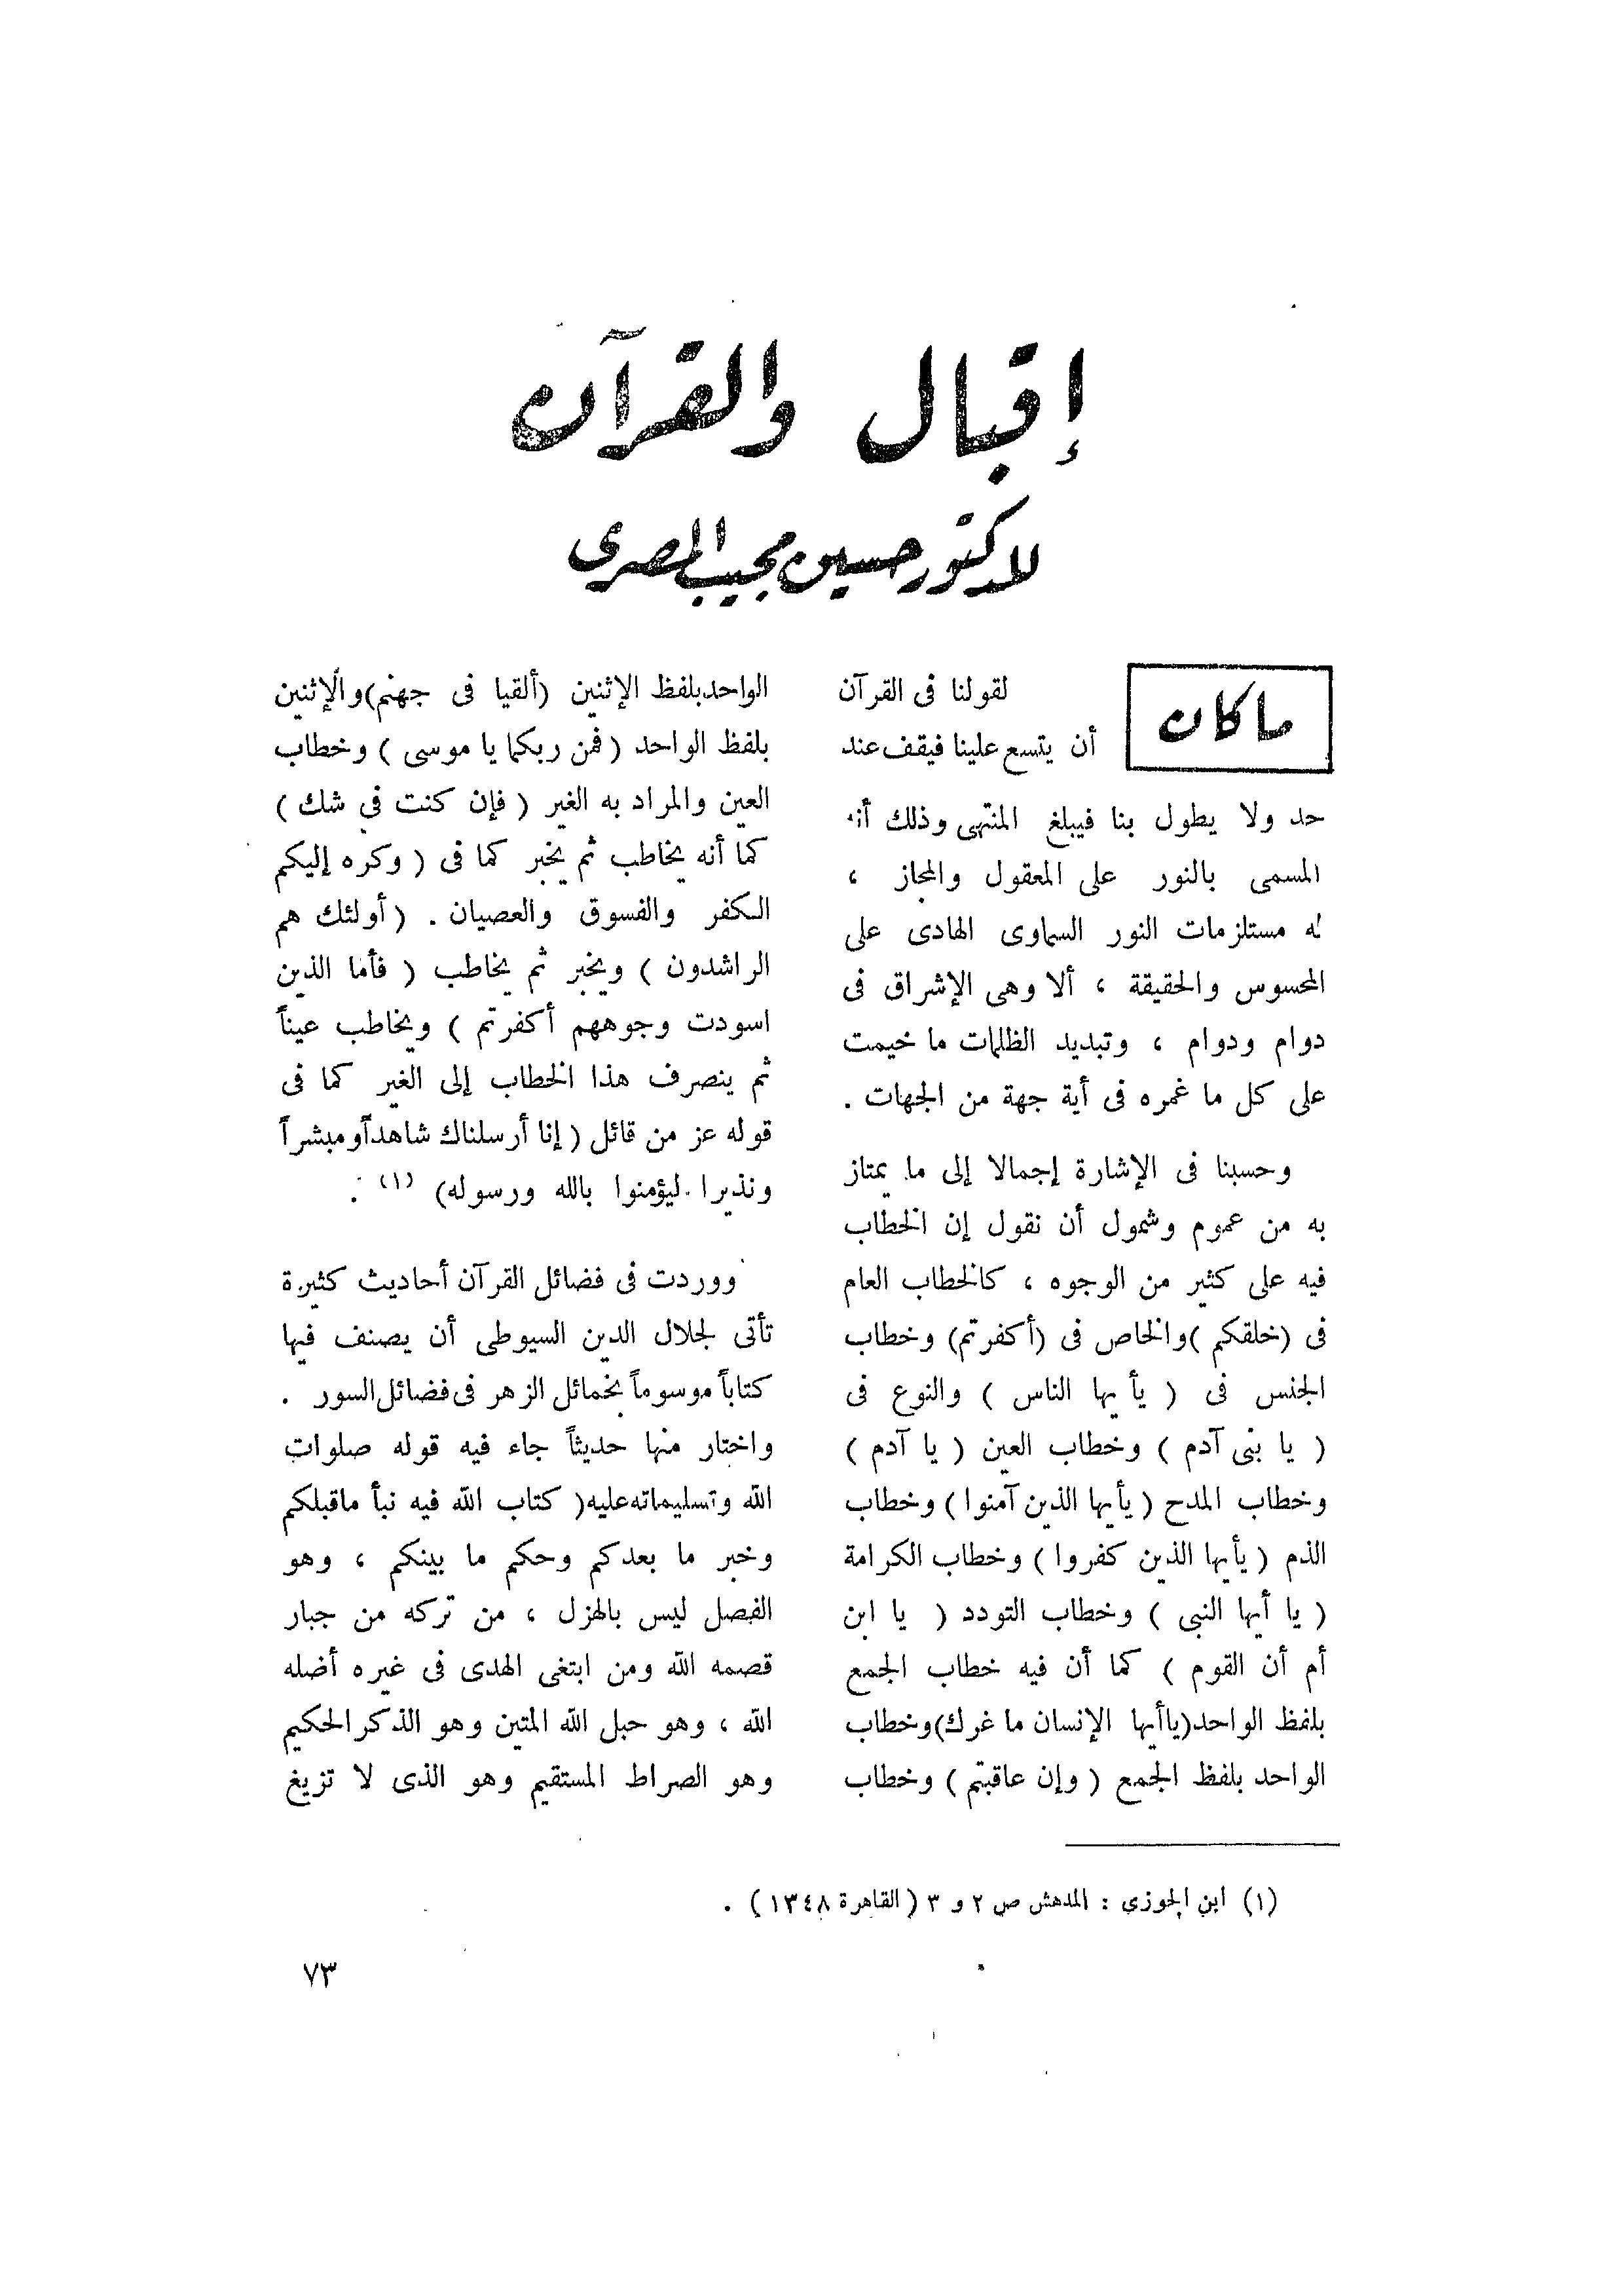 إقبال والقرآن
للدكتور حسين مجيب المصرى
ما كان
لقولنا فى القرآن
أن يتسع علينا فيقف عند
حد ولا يطول بنا فيبلغ المنتهى وذلك أنه
المسمى بالنور على المعقول والمجاز ،
له مستلزمات النور السماوى الهادى على
المحسوس والحقيقة ، ألا وهى الإشراق فى
دوام ودوام ، وتبديد الظلمات ما خيمت
على كل ما غمره فى أية جهة من الجهات .
وحسبنا فى الإشارة إجمالا إلى ما يمتاز
به من عموم وشمول أن نقول إن الخطاب
فيه على كثير من الوجوه ، كالخطاب العام
فى (خلقكم) والخاص فى (أكفرتم) وخطاب
الجنس فى ( يأيها الناس ) والنوع فى
( يا بنى آدم ) وخطاب العين ( يا آدم )
وخطاب المدح ( يأيها الذين آمنوا ) وخطاب
الذم ( يأيها الذين كفروا ) وخطاب الكرامة
( يا أيها النبى ) وخطاب التودد ( يا ابن
أم أن القوم ) كما أن فيه خطاب الجمع
بلفظ الواحد (ياأيها الإنسان ما غرك) وخطاب
الواحد بلفظ الجمع ( وإن عاقبتم ) وخطاب
الواحد بلفظ الإثنين (ألقيا فى جهنم) والإثنين
بلفظ الواحد ( فمن ربكما يا موسى ) وخطاب
العين والمراد به الغير ( فإن كنت في شك )
كما أنه يخاطب ثم يخبر كما فى ( وكره إليكم
الكفر والفسوق والعصيان . ( أولئك هم
الراشدون ) ويخبر ثم يخاطب ( فأما الذين
اسودت وجوههم أكفرتم ) ويخاطب عيناً
ثم ينصرف هذا الخطاب إلى الغير كما فى
قوله عز من قائل ( إنا أرسلناك شاهداً ومبشراً
ونذيرا ليؤمنوا بالله ورسوله) (١) .
ووردت فى فضائل القرآن أحاديث كثيرة
تأتى لجلال الدين السيوطى أن يصنف فيها
كتاباً موسوماً بخمائل الزهر فى فضائل السور .
واختار منها حديثاً جاء فيه قوله صلوات
الله وتسليماته عليه ( كتاب الله فيه نبأ ماقبلكم
وخبر ما بعدكم وحكم ما بينكم ، وهو
الفصل ليس بالهزل ، من تركه من جبار
قصمه الله ومن ابتغى الهدى فى غيره أضله
الله ، وهو حبل الله المتين وهو الذكر الحكيم
وهو الصراط المستقيم وهو الذى لا تزيغ
(١) ابن الجوزي : المدهش ص ٢ و ٣ ( القاهرة ١٣٤٨ ) .
٧٣